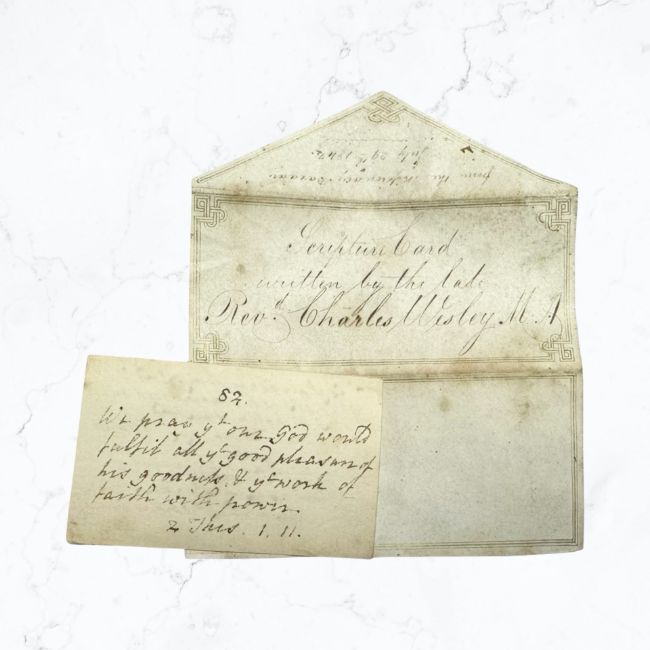 from the Missionary Bazaar
July 29th 1842
Scripture Card
written by the late
Revd. Charles Wesley M. A
82.
We pray yt. our God would
fulfil all ye good pleasure of
his goodness, & ye work of
faith with power.
2 Thes. 1. 11.